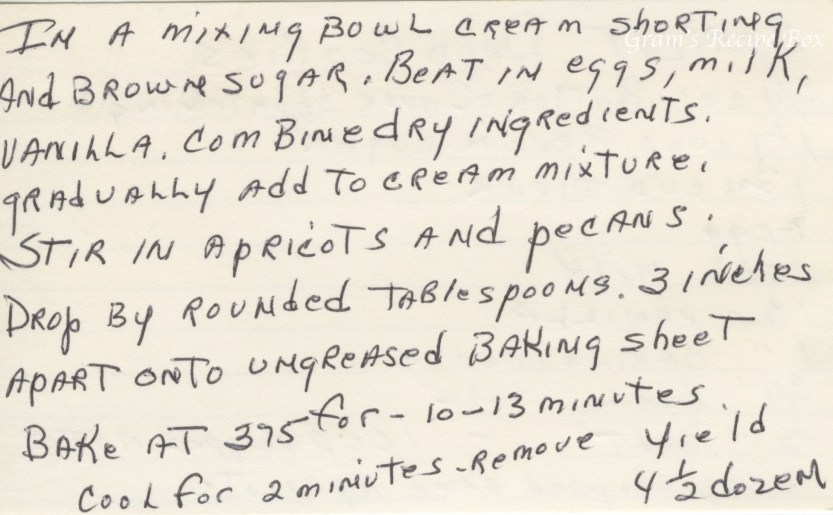 IN A mixing BOWL CREAM SHORTING
Gram's Recipe Box
And BROWN SUgAR. BEAT IN eggs, milk,
VANILLA. ComBine dRy INgRedIENTS.
gRAdUALLY Add To CREAM mixTURE.
STIR IN ApRicoTS ANd pecANS.
DRop By ROUNded TABlespooNS. 3 inches
APART ONTO UNgReASed BAKINg sheeT
BAKe AT 375 foR - 10-13 miNUTes
Cool foR 2 miNiUTes - Remove yield
4 1/2 dozeN